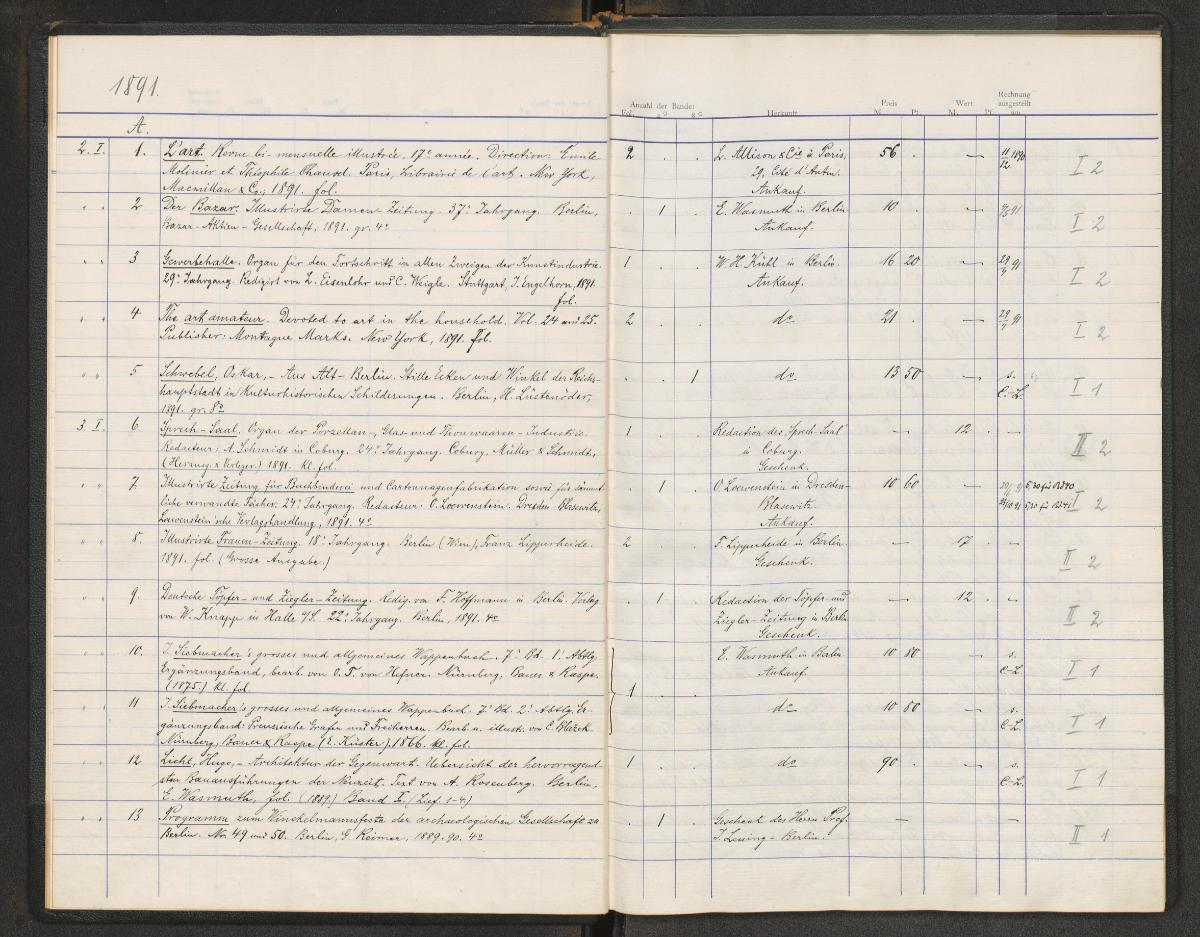 1891.
Anzahl der Bände:
Fol. 4° 8°
Herkunft
Preis
M. Pf.
Wert
M. Pf.
Rechnung
ausgestellt
am
A.
2. I. 1. L'art. Revue bi-mensuelle illustrée. 17e année. Direction: Emile 2 . . L. Allison & Cie à Paris, 56 . — 11/12 1890 I 2
Molinier et Théophile Chauvel. Paris, Librairie de l'art. New York, 29. Cité d'Antin.
Macmillan & Co., 1891. fol. Ankauf.
" " 2 Der Bazar. Illustrirte Damen-Zeitung. 37. Jahrgang. Berlin, . 1 . E. Wasmuth in Berlin 10 . — 91 I 2
Bazar-Aktien-Gesellschaft, 1891. gr. 4° Ankauf.
" " 3 Gewerbehalle. Organ für den Fortschritt in allen Zweigen der Kunstindustrie. 1 . . W. H. Kühl in Berlin. 16 20 — 91 I 2
29. Jahrgang. Redigirt von L. Eisenlohr und C. Weigle. Stuttgart, J. Engelhorn, 1891. Ankauf.
fol.
" " 4 The art amateur. Devoted to art in the household. Vol. 24 und 25. 2 . . do 21 . — 91 I 2
Publisher: Montague Marks. New York, 1891. fol.
" " 5 Schwebel, Oskar, - Aus Alt-Berlin. Stille Ecken und Winkel der Reichs- . . 1 do 13 50 — s. I 1
hauptstadt in kulturhistorischen Schilderungen. Berlin, H. Lüstenöder, C.-L.
1891. gr. 8°
3. I. 6 Sprech-Saal. Organ der Porzellan-, Glas- und Thonwaaren-Industrie. 1 . . Redaction des Sprech-Saal — 12 . — II 2
Redacteur: A. Schmidt in Coburg. 24. Jahrgang. Coburg, Müller & Schmidt, in Coburg.
(Herausg. & Verleger.) 1891. kl. fol. Geschenk.
" " 7. Illustrirte Zeitung für Buchbinderei und Cartonnagenfabrikation sowie für sämmt- . 1 . O. Loewenstein in Dresden- 10 60 — 5,30 für I 2
liche verwandte Fächer. 24. Jahrgang. Redacteur: O. Loewenstein. Dresden-Blasewitz, Blasewitz. 91 5,30 für
Loewenstein'sche Verlagshandlung, 1891. 4° Ankauf.
" " 8. Illustrirte Frauen-Zeitung. 18. Jahrgang. Berlin (Wien), Franz Lipperheide. 2 . . F. Lipperheide in Berlin — 17 . — II 2
1891. fol. (Grosse Ausgabe.) Geschenk.
" " 9. Deutsche Töpfer- und Ziegler-Zeitung. Redig. von F. Hoffmann in Berlin. Verlag . 1 . Redaction der Töpfer- und — 12 . — II 2
von W. Knapp in Halle a/S. 22. Jahrgang. Berlin, 1891. 4° Ziegler-Zeitung in Berlin
Geschenk.
" " 10. J. Siebmacher's grosses und allgemeines Wappenbuch. 7. Bd. 1. Abtlg. E. Wasmuth in Berlin 10 80 — s. I 1
Ergänzungsband, bearb. von O. T. von Hefner. Nürnberg, Bauer & Raspe. Ankauf. C-L.
(1875.) kl. fol. 1 . .
" " 11 J. Siebmacher's grosses und allgemeines Wappenbuch. 7. Bd. 2. Abtlg. Er- do 10 80 — s. I 1
gänzungsband: Preussische Grafen und Freiherren. Bearb. u. illustr. von C. Blažek. C-L.
Nürnberg, Bauer & Raspe (E. Küster), 1866. kl. fol.
" " 12. Licht, Hugo, - Architektur der Gegenwart. Uebersicht der hervorragend- 1 . . do 90 . — s. I 1
sten Bauausführungen der Neuzeit. Text von A. Rosenberg. Berlin, C-L.
E. Wasmuth, fol. (1889.) Band I. (Lief. 1-4.)
" " 13 Programm zum Winckelmannsfeste der archaeologischen Gesellschaft zu . 1 . Geschenk des Herrn Prof. — — II 1
Berlin. Nr. 49 und 50. Berlin, G Reimer, 1889-90. 4° J. Lessing - Berlin.